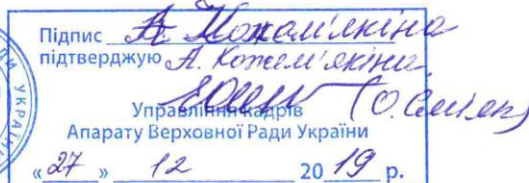 Підпис А. Кожем'якіна
підтверджую А. Кожем'якіна
Управління кадрів
Апарату Верховної Ради України
«27» 12 2019 р.